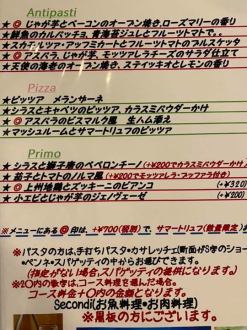 Antipasti
★◎ じゃが芋とベーコンのオーブン焼き、ローズマリーの香り
★鮮魚のカルパッチョ、青海苔ジュレとフルーツトマトで。。
★スカモルツァ・アッフミカートとフルーツトマトのブルスケッタ
★◎ アスパラ、じゃが芋、モッツァレラチーズのサラダ仕立て
★天使の海老のオーブン焼き、スティッキオとレモンの香り
Pizza
★ピッツァ メランザーネ
★シラスとキャベツのピッツァ、カラスミパウダーかけ
★◎アスパラのビスマルク風 生ハム添え
★マッシュルームとサマートリュフのピッツァ
Primo
★シラスと獅子唐のペペロンチーノ(+¥200でカラスミパウダーかけ
★茄子とトマトのノルマ風 (+¥200でモッツァレラ・ブッファラ付き)
★◎上州地鶏とズッキーニのビアンコ (+¥320)
★ 小エビとじゃが芋のジェノヴェーゼ (+¥200)
※メニューにある◎印は、+¥700(税別)で、サマートリュフ(数量限定)
※パスタの方は、手打ちパスタ・カサレッチェ(断面がS字のショー
・ペンネ・スパゲッティの中からお選びできます。
(指定がない場合、スパゲッティの提供になります。)
※2〇内の数字は、コースの場合の料金になります。
コース料金+〇内の金額となります。
Secondi(お魚料理・お肉料理)
※黒板の方にございます。